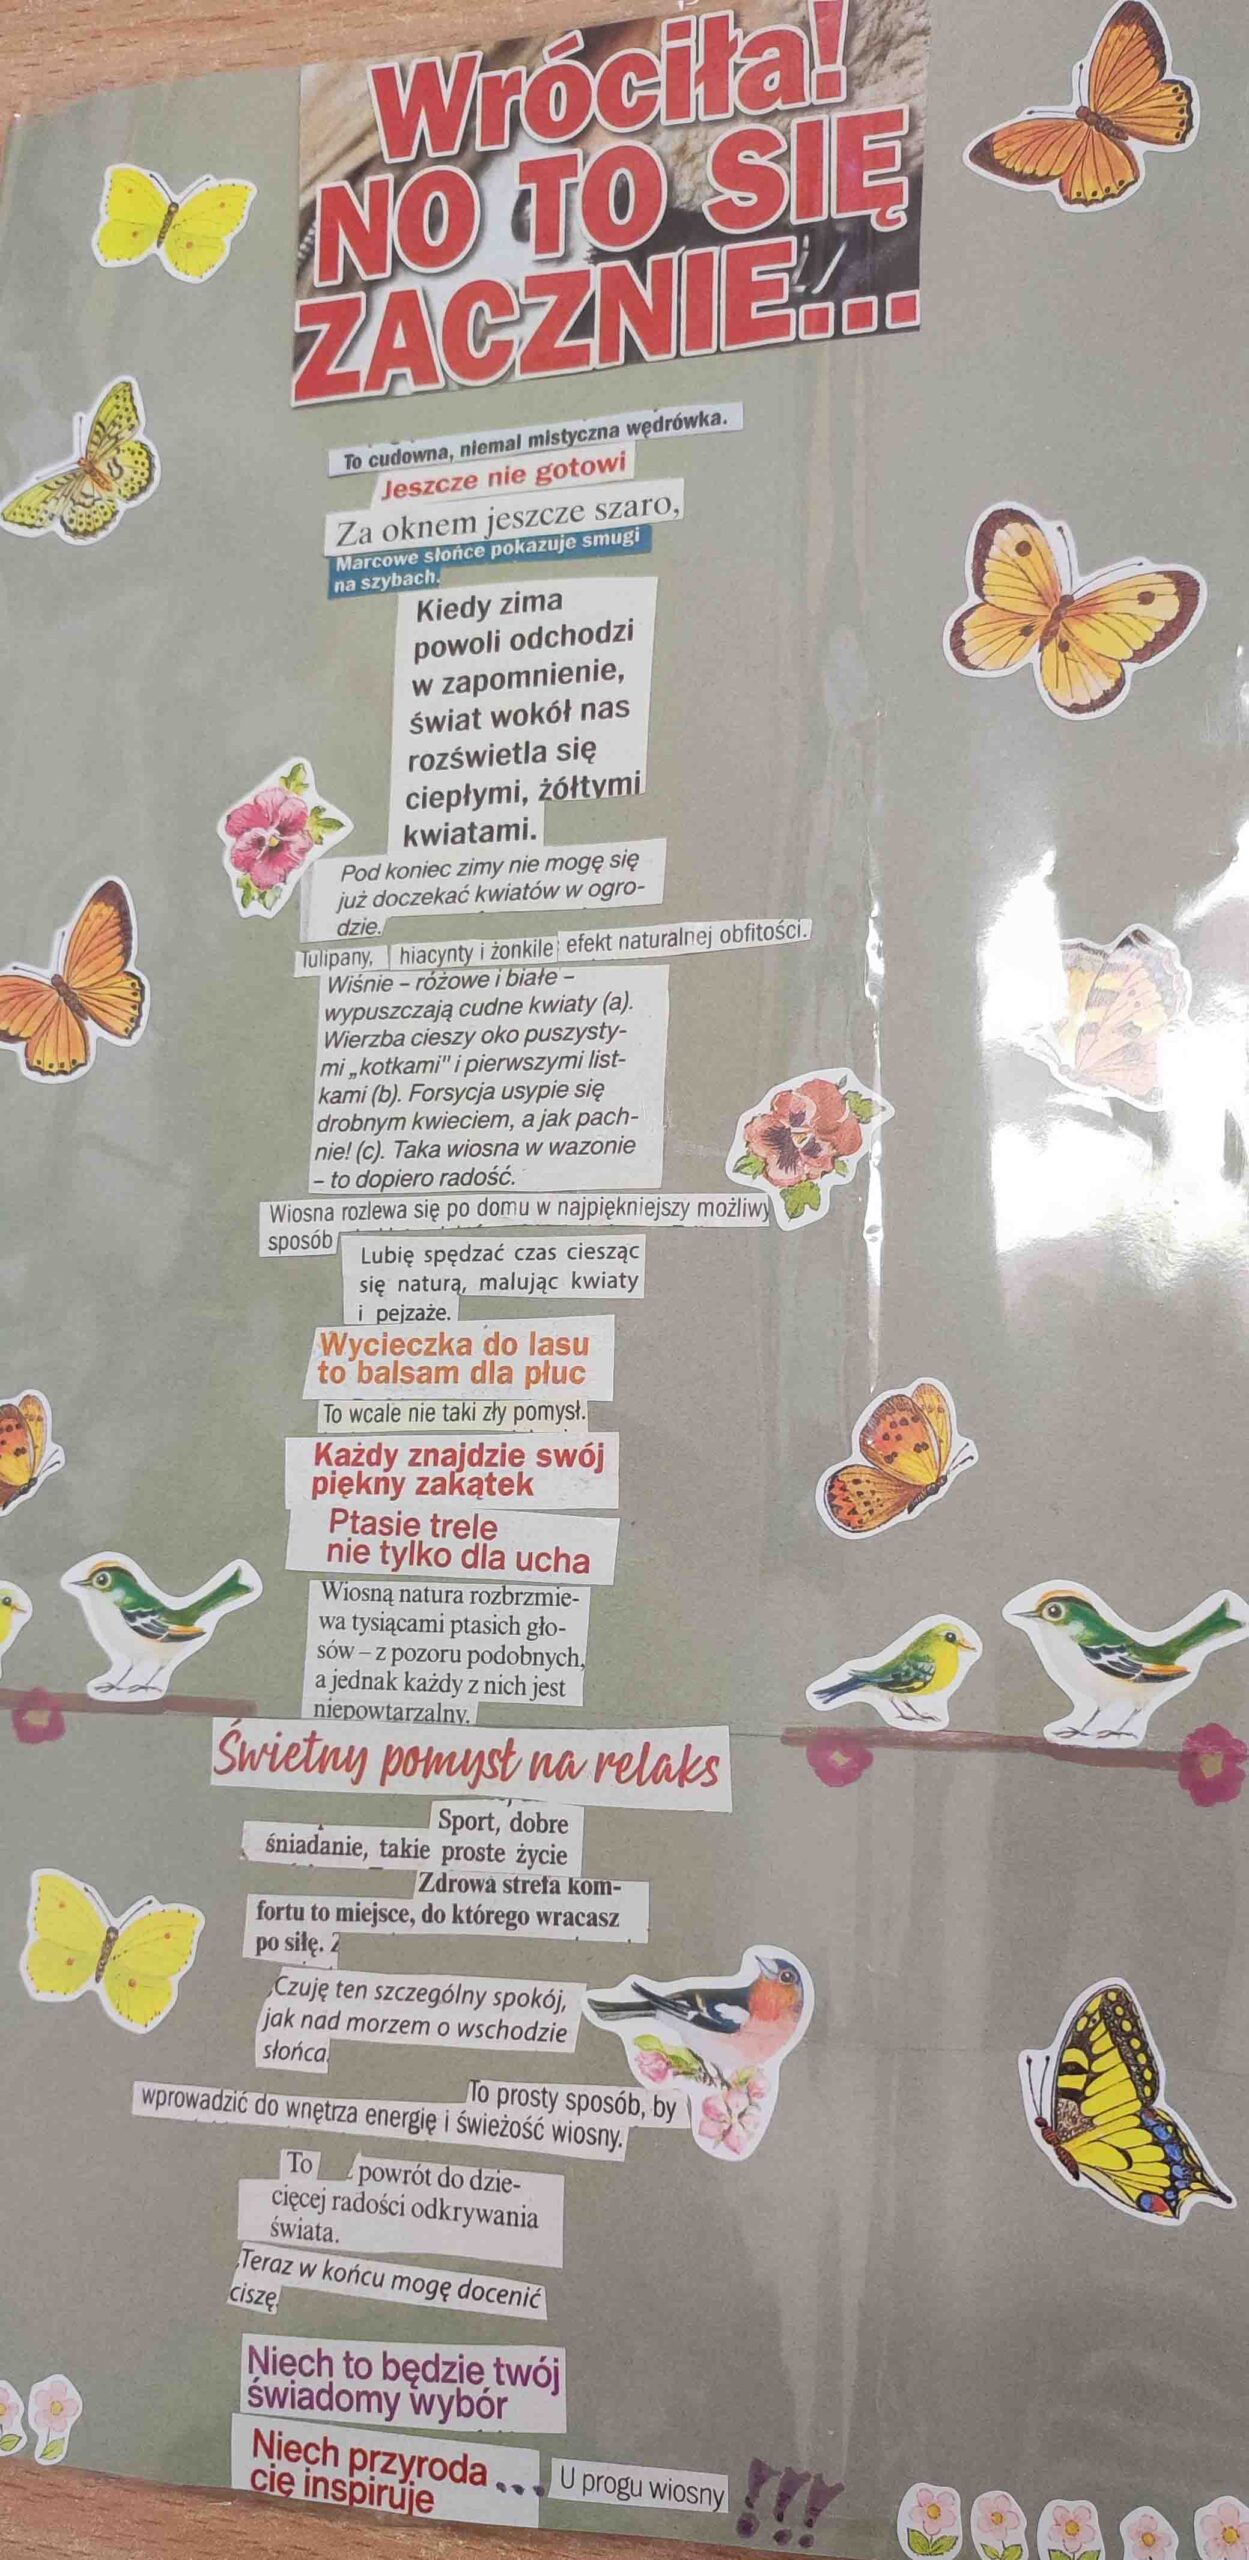 Wróciła!
NO TO SIĘ
ZACZNIE...
To cudowna, niemal mistyczna wędrówka.
Jeszcze nie gotowi
Za oknem jeszcze szaro,
Marcowe słońce pokazuje smugi
na szybach.
Kiedy zima
powoli odchodzi
w zapomnienie,
świat wokół nas
rozświetla się
ciepłymi, żółtymi
kwiatami.
Pod koniec zimy nie mogę się
już doczekać kwiatów w ogro-
dzie.
Tulipany, hiacynty i żonkile efekt naturalnej obfitości.
Wiśnie – różowe i białe –
wypuszczają cudne kwiaty (a).
Wierzba cieszy oko puszysty-
mi „kotkami" i pierwszymi list-
kami (b). Forsycja usypie się
drobnym kwieciem, a jak pach-
nie! (c). Taka wiosna w wazonie
– to dopiero radość.
Wiosna rozlewa się po domu w najpiękniejszy możliwy
sposób
Lubię spędzać czas ciesząc
się naturą, malując kwiaty
i pejzaże.
Wycieczka do lasu
to balsam dla płuc
To wcale nie taki zły pomysł.
Każdy znajdzie swój
piękny zakątek
Ptasie trele
nie tylko dla ucha
Wiosną natura rozbrzmie-
wa tysiącami ptasich gło-
sów – z pozoru podobnych,
a jednak każdy z nich jest
niepowtarzalny.
Świetny pomysł na relaks
Sport, dobre
śniadanie, takie proste życie
Zdrowa strefa kom-
fortu to miejsce, do którego wracasz
po siłę.
Czuję ten szczególny spokój,
jak nad morzem o wschodzie
słońca
To prosty sposób, by
wprowadzić do wnętrza energię i świeżość wiosny.
To powrót do dzie-
cięcej radości odkrywania
świata.
Teraz w końcu mogę docenić
ciszę
Niech to będzie twój
świadomy wybór
Niech przyroda
cię inspiruje ... U progu wiosny !!!